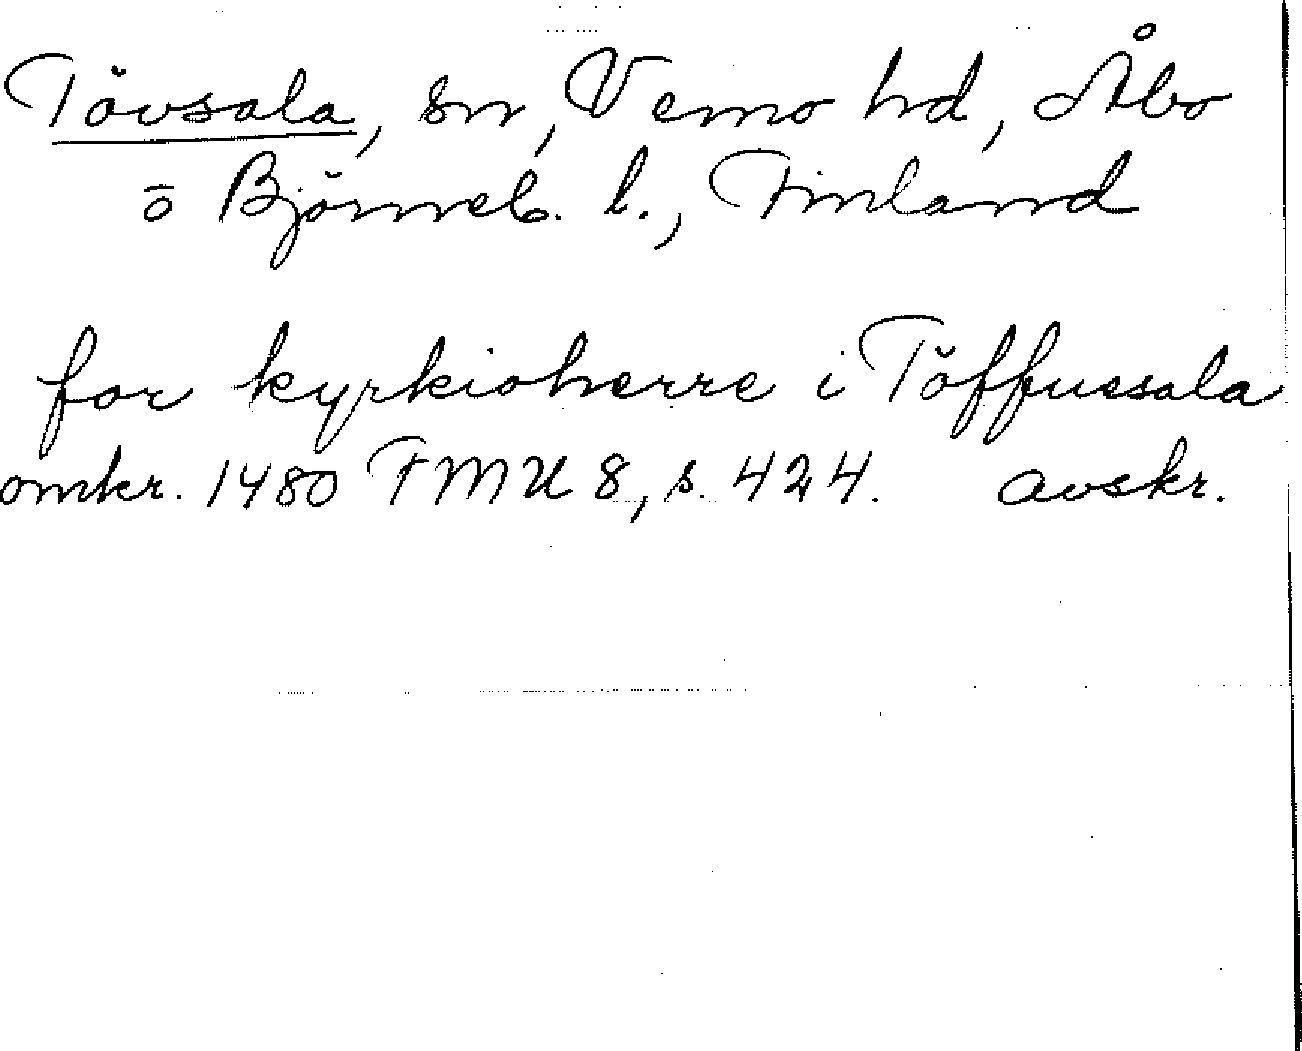 Tövsala, sn, Vemo hd, Åbo
o Björneb. l., Finland
for kyrkioherre i Töffuesala
omkr. 1480 FMU 8, s. 424. avskr.